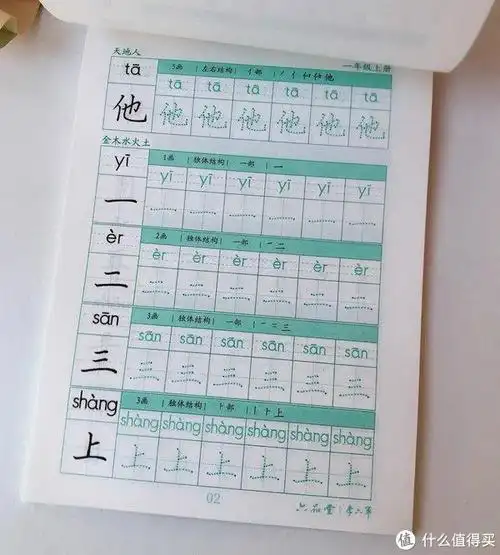 天地人 一年级上册
tā 5画 | 左右结构 | 亻部 | ノ 亻 㐌 他
tā tā tā tā tā tā
他 他 他 他 他 他 他
金木水火土
yī 1画 | 独体结构 | 一部 | 一
yī yī yī yī yī yī
一 一 一 一 一 一 一
èr 2画 | 独体结构 | 一部 | 一 二
èr èr èr èr èr èr
二 二 二 二 二 二 二
sān 3画 | 独体结构 | 一部 | 一 二 三
sān sān sān sān sān sān
三 三 三 三 三 三 三
shàng 3画 | 独体结构 | 卜部 | 丨 卜 上
shàng shàng shàng shàng shàng shàng
上 上 上 上 上 上 上
02
六品堂 | 李六军
值 什么值得买